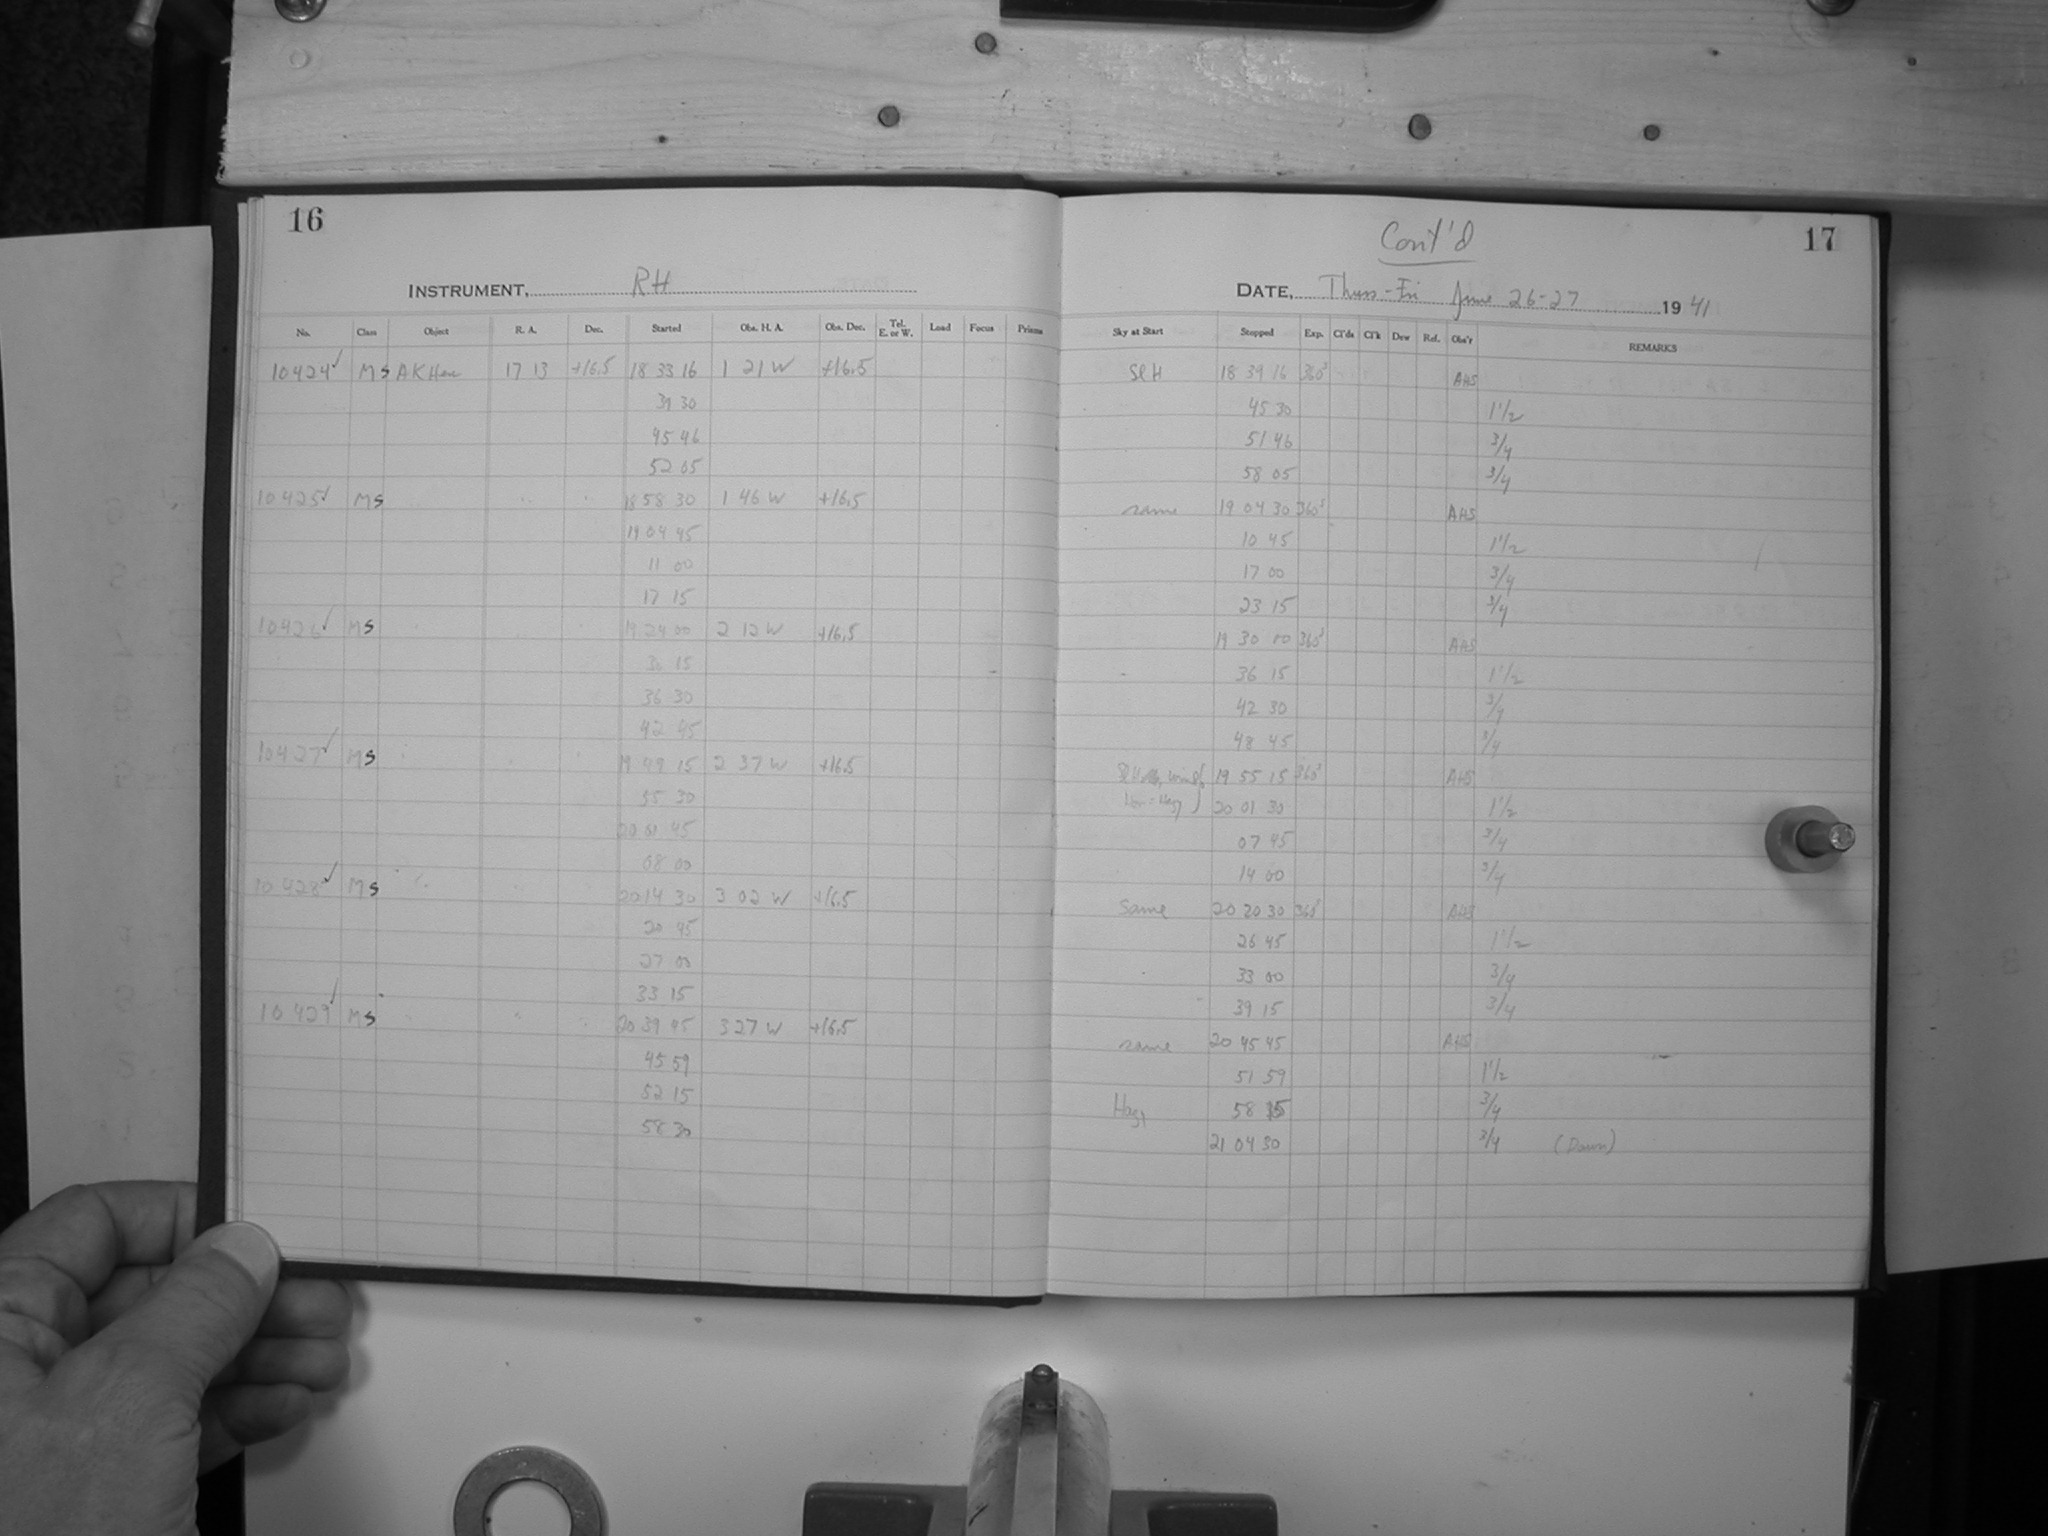 16
INSTRUMENT, RH
No. Class Object R. A. Dec. Started Obs. H. A. Obs. Dec. Tel. E. or W. Load Focus Prisms
10424 ✓ MS AKHer 17 13 +16.5 18 33 16 1 21 W +16.5
39 30
45 46
52 05
10425 ✓ MS " " 18 58 30 1 46 W +16.5
19 04 45
11 00
17 15
10426 ✓ MS 19 24 00 2 12 W +16.5
30 15
36 30
42 45
10427 ✓ MS 19 49 15 2 37 W +16.5
55 30
20 01 45
08 00
10428 ✓ MS 20 14 30 3 02 W +16.5
20 45
27 00
33 15
10429 ✓ MS 20 39 45 3 27 W +16.5
45 59
52 15
58 30
Cont'd
17
DATE, Thurs-Fri June 26-27 1941
Sky at Start Stopped Exp. Cl'ds Cl'k Dew Ref. Obs'r REMARKS
Sl H 18 39 16 360s AHS
45 30 1 1/2
51 46 3/4
58 05 3/4
same 19 04 30 360s AHS
10 45 1 1/2
17 00 3/4
23 15 3/4
19 30 00 360s AHS
36 15 1 1/2
42 30 3/4
48 45 3/4
19 55 15 360s AHS
20 01 30 1 1/2
07 45 3/4
14 00 3/4
Same 20 20 30 360s AHS
26 45 1 1/2
33 00 3/4
39 15 3/4
same 20 45 45 AHS
51 59 1 1/2
Hazy 58 15 3/4
21 04 30 3/4 (Dawn)